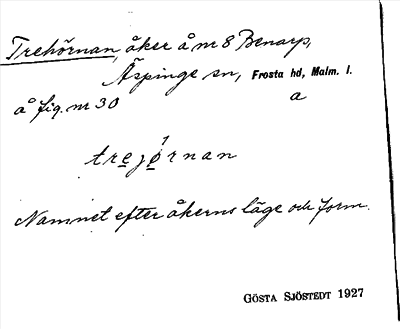 Trehörnan, åker å nr 8 Benarp,
Äspinge sn, Frosta hd, Malm. l.
å fig. nr 30 a
trejørnan
Namnet efter åkerns läge och form.
GÖSTA SJÖSTEDT 1927